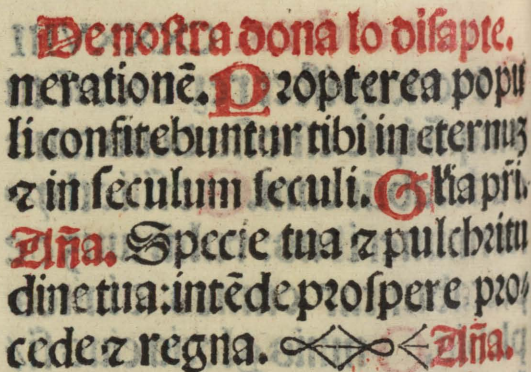 De noſtra dona lo diſapte.
nerationē. Propterea popu
li confitebuntur tibi in eternuꝫ
⁊ in ſeculum ſeculi. Glia pr̄i.
Añã. Specie tua ⁊ pulchritu
dine tua: intēde proſpere pro⸗
cede ⁊ regna. Añã.